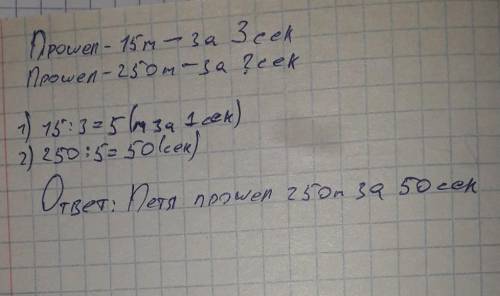 Прошел - 15м - за 3 сек
Прошел - 250м - за ? сек
1) 15:3=5(м за 1 сек)
2) 250:5=50(сек)
Ответ: Петя прошел 250м за 50 сек